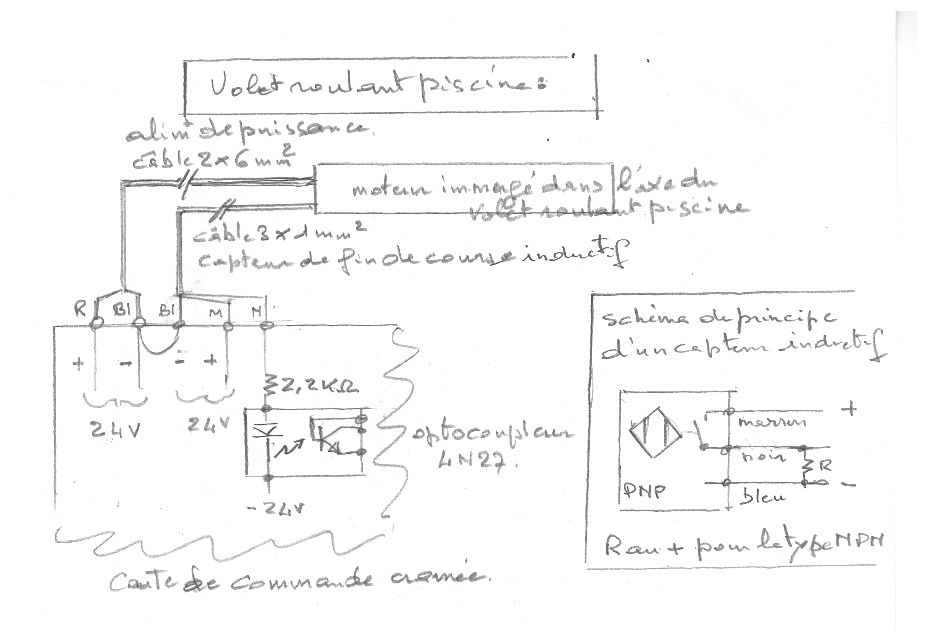 Volet roulant piscine:
alim⁽ⁿ⁾ de puissance.
câble 2 x 6 mm²
moteur immergé dans l'axe du
volet roulant piscine
câble 3 x 1 mm²
capteur de fin de course inductif
R Bl Bl M N
+ - - +
24V 24V
2,2KΩ
optocoupleur
4N27.
-24V
Carte de commande cramée.
schéma de principe
d'un capteur inductif
+
marron
noir
R
-
bleu
PNP
R au + pour le type NPN